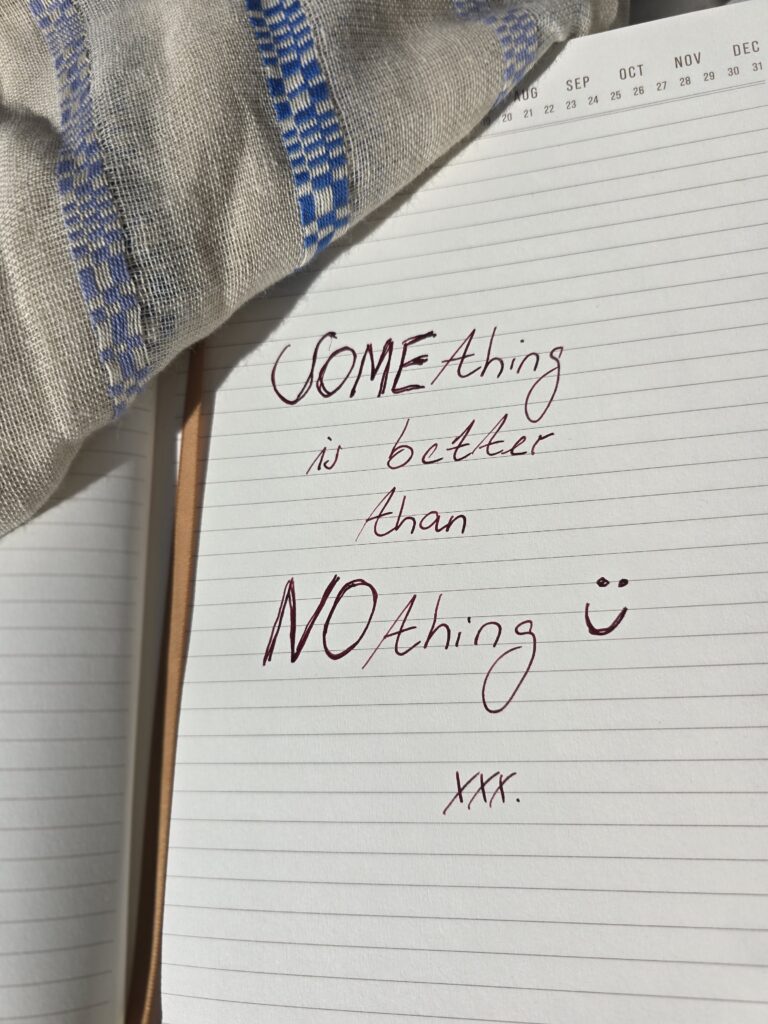 AUG SEP OCT NOV DEC
20 21 22 23 24 25 26 27 28 29 30 31
SOMEthing
is better
than
NOthing
xxx.